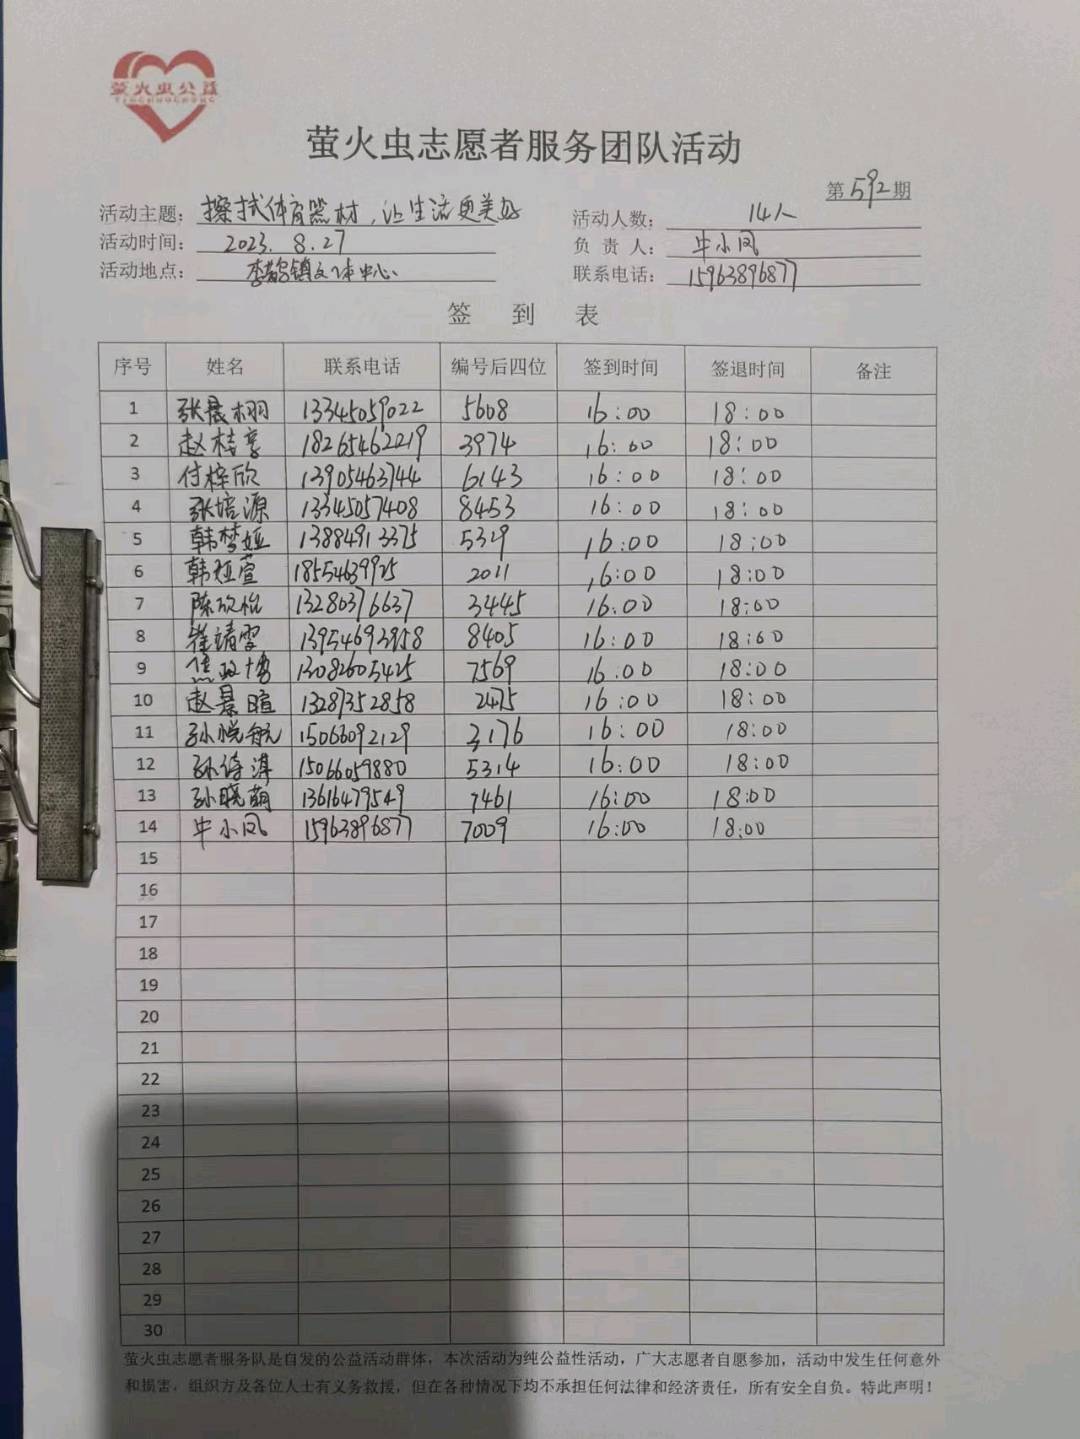 萤火虫公益
YINGHUOCHONG
萤火虫志愿者服务团队活动
第592期
活动主题： 擦拭体育器材，让生活更美好 活动人数： 14人
活动时间： 2023. 8.27 负 责 人： 牛小凤
活动地点： 李鹊镇文体中心 联系电话： 15963896877
签 到 表
序号 姓名 联系电话 编号后四位 签到时间 签退时间 备注
1 张晟栩 13345059022 5608 16:00 18:00
2 赵梓豪 18265462219 3974 16:00 18:00
3 付梓欣 13905463744 6143 16:00 18:00
4 张培源 13345057408 8453 16:00 18:00
5 韩梦娅 13884913375 5329 16:00 18:00
6 韩娅萱 18554639925 2011 16:00 18:00
7 陈欣怡 13280376637 3445 16:00 18:00
8 崔靖雯 13954693958 8405 16:00 18:00
9 焦政博 13082605425 7569 16:00 18:00
10 赵景暄 13287352858 2475 16:00 18:00
11 孙悦航 15066092129 3176 16:00 18:00
12 孙 15066059880 5314 16:00 18:00
13 孙晓萌 13616479549 7461 16:00 18:00
14 牛小凤 15963896877 7009 16:00 18:00
15
16
17
18
19
20
21
22
23
24
25
26
27
28
29
30
萤火虫志愿者服务队是自发的公益活动群体，本次活动为纯公益性活动，广大志愿者自愿参加，活动中发生任何意外
和损害，组织方及各位人士有义务救援，但在各种情况下均不承担任何法律和经济责任，所有安全自负。特此声明！